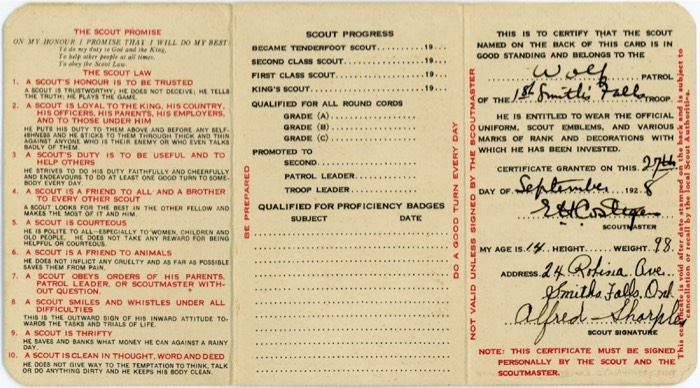 THE SCOUT PROMISE
ON MY HONOUR I PROMISE THAT I WILL DO MY BEST:
To do my duty to God and the King,
To help other people at all times,
To obey the Scout Law.
THE SCOUT LAW
1. A SCOUT'S HONOUR IS TO BE TRUSTED
A SCOUT IS TRUSTWORTHY; HE DOES NOT DECEIVE; HE TELLS
THE TRUTH; HE PLAYS THE GAME.
2. A SCOUT IS LOYAL TO THE KING, HIS COUNTRY,
HIS OFFICERS, HIS PARENTS, HIS EMPLOYERS,
AND TO THOSE UNDER HIM
HE PUTS HIS DUTY TO THEM ABOVE AND BEFORE ANY SELF-
ISHNESS AND HE STICKS TO THEM THROUGH THICK AND THIN
AGAINST ANYONE WHO IS THEIR ENEMY OR WHO EVEN TALKS
BADLY OF THEM.
3. A SCOUT'S DUTY IS TO BE USEFUL AND TO
HELP OTHERS
HE STRIVES TO DO HIS DUTY FAITHFULLY AND CHEERFULLY
AND ENDEAVOURS TO DO AT LEAST ONE GOOD TURN TO SOME-
BODY EVERY DAY.
4. A SCOUT IS A FRIEND TO ALL AND A BROTHER
TO EVERY OTHER SCOUT
A SCOUT LOOKS FOR THE BEST IN THE OTHER FELLOW AND
MAKES THE MOST OF IT AND HIM.
5. A SCOUT IS COURTEOUS
HE IS POLITE TO ALL—ESPECIALLY TO WOMEN, CHILDREN AND
OLD PEOPLE. HE DOES NOT TAKE ANY REWARD FOR BEING
HELPFUL OR COURTEOUS.
6. A SCOUT IS A FRIEND TO ANIMALS
HE DOES NOT INFLICT ANY CRUELTY AND AS FAR AS POSSIBLE
SAVES THEM FROM PAIN.
7. A SCOUT OBEYS ORDERS OF HIS PARENTS,
PATROL LEADER, OR SCOUTMASTER WITH-
OUT QUESTION.
8. A SCOUT SMILES AND WHISTLES UNDER ALL
DIFFICULTIES
THIS IS THE OUTWARD SIGN OF HIS INWARD ATTITUDE TO-
WARDS THE TASKS AND TRIALS OF LIFE.
9. A SCOUT IS THRIFTY
HE SAVES AND BANKS WHAT MONEY HE CAN AGAINST A RAINY
DAY.
10. A SCOUT IS CLEAN IN THOUGHT, WORD AND DEED
HE DOES NOT GIVE WAY TO THE TEMPTATION TO THINK, TALK
OR DO ANYTHING DIRTY AND HE KEEPS HIS BODY CLEAN.
BE PREPARED
SCOUT PROGRESS
BECAME TENDERFOOT SCOUT 19
SECOND CLASS SCOUT 19
FIRST CLASS SCOUT 19
KING'S SCOUT 19
QUALIFIED FOR ALL ROUND CORDS
GRADE (A)
GRADE (B)
GRADE (C)
PROMOTED TO
SECOND
PATROL LEADER
TROOP LEADER
QUALIFIED FOR PROFICIENCY BADGES
SUBJECT DATE
DO A GOOD TURN EVERY DAY
NOT VALID UNLESS SIGNED BY THE SCOUTMASTER
THIS IS TO CERTIFY THAT THE SCOUT
NAMED ON THE BACK OF THIS CARD IS IN
GOOD STANDING AND BELONGS TO THE
Wolf PATROL
OF THE 1st Smiths Falls TROOP
HE IS ENTITLED TO WEAR THE OFFICIAL
UNIFORM, SCOUT EMBLEMS, AND VARIOUS
MARKS OF RANK AND DECORATIONS WITH
WHICH HE HAS BEEN INVESTED.
CERTIFICATE GRANTED ON THIS 27th
DAY OF September 1928
SCOUTMASTER
MY AGE IS 14 HEIGHT WEIGHT 98
ADDRESS 24 Robina Ave.
Smiths Falls, Ont
Alfred Sharples
SCOUT SIGNATURE
NOTE: THIS CERTIFICATE MUST BE SIGNED
PERSONALLY BY THE SCOUT AND THE
SCOUTMASTER.
This certificate is void after date stamped on the back and is subject to
cancellation or recall by the local Scout Authorities.